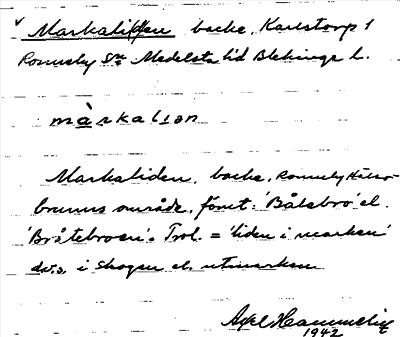 v Markali(d)en backe, Karlstorp 1
Ronneby Sn. Medelsta hd Blekinge l.
màrkaliən
Markaliden, backe, Ronneby Hälso-
brunns område, förut: 'Bålebro' el.
'Bråtebroen'. Trol. = 'liden i marken'
dvs. i skogen el. utmarken
Axel Hammelig
1942